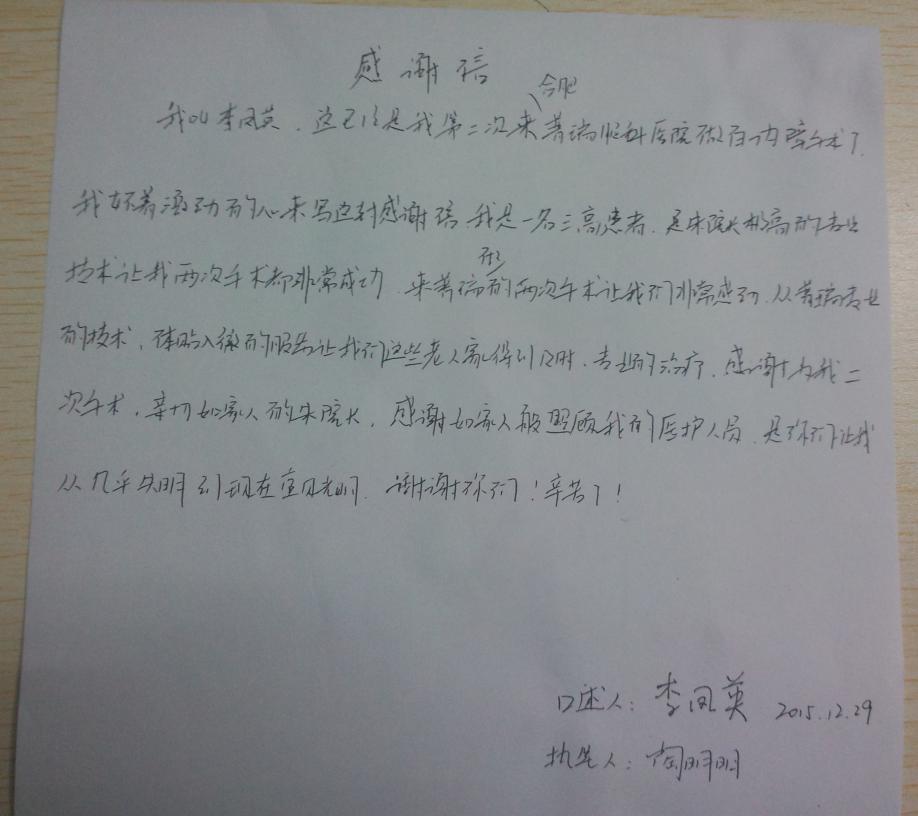 感谢信
我叫李凤英，这已经是我第二次来合肥普瑞眼科医院做白内障手术了，
我怀着激动的心来写这封感谢信。我是一名三高患者，是朱院长极高的专业
技术让我两次手术都非常成功，来普瑞的两次手术让我们非常感动，从普瑞专业
的技术，体贴入微的服务让我们这些老人家得到及时、专业的治疗，感谢为我二
次手术，亲切如家人的朱院长，感谢如家人般照顾我的医护人员，是你们让我
从几乎失明到现在重见光明，谢谢你们！辛苦了！
口述人：李凤英 2015.12.29
执笔人：陶明明